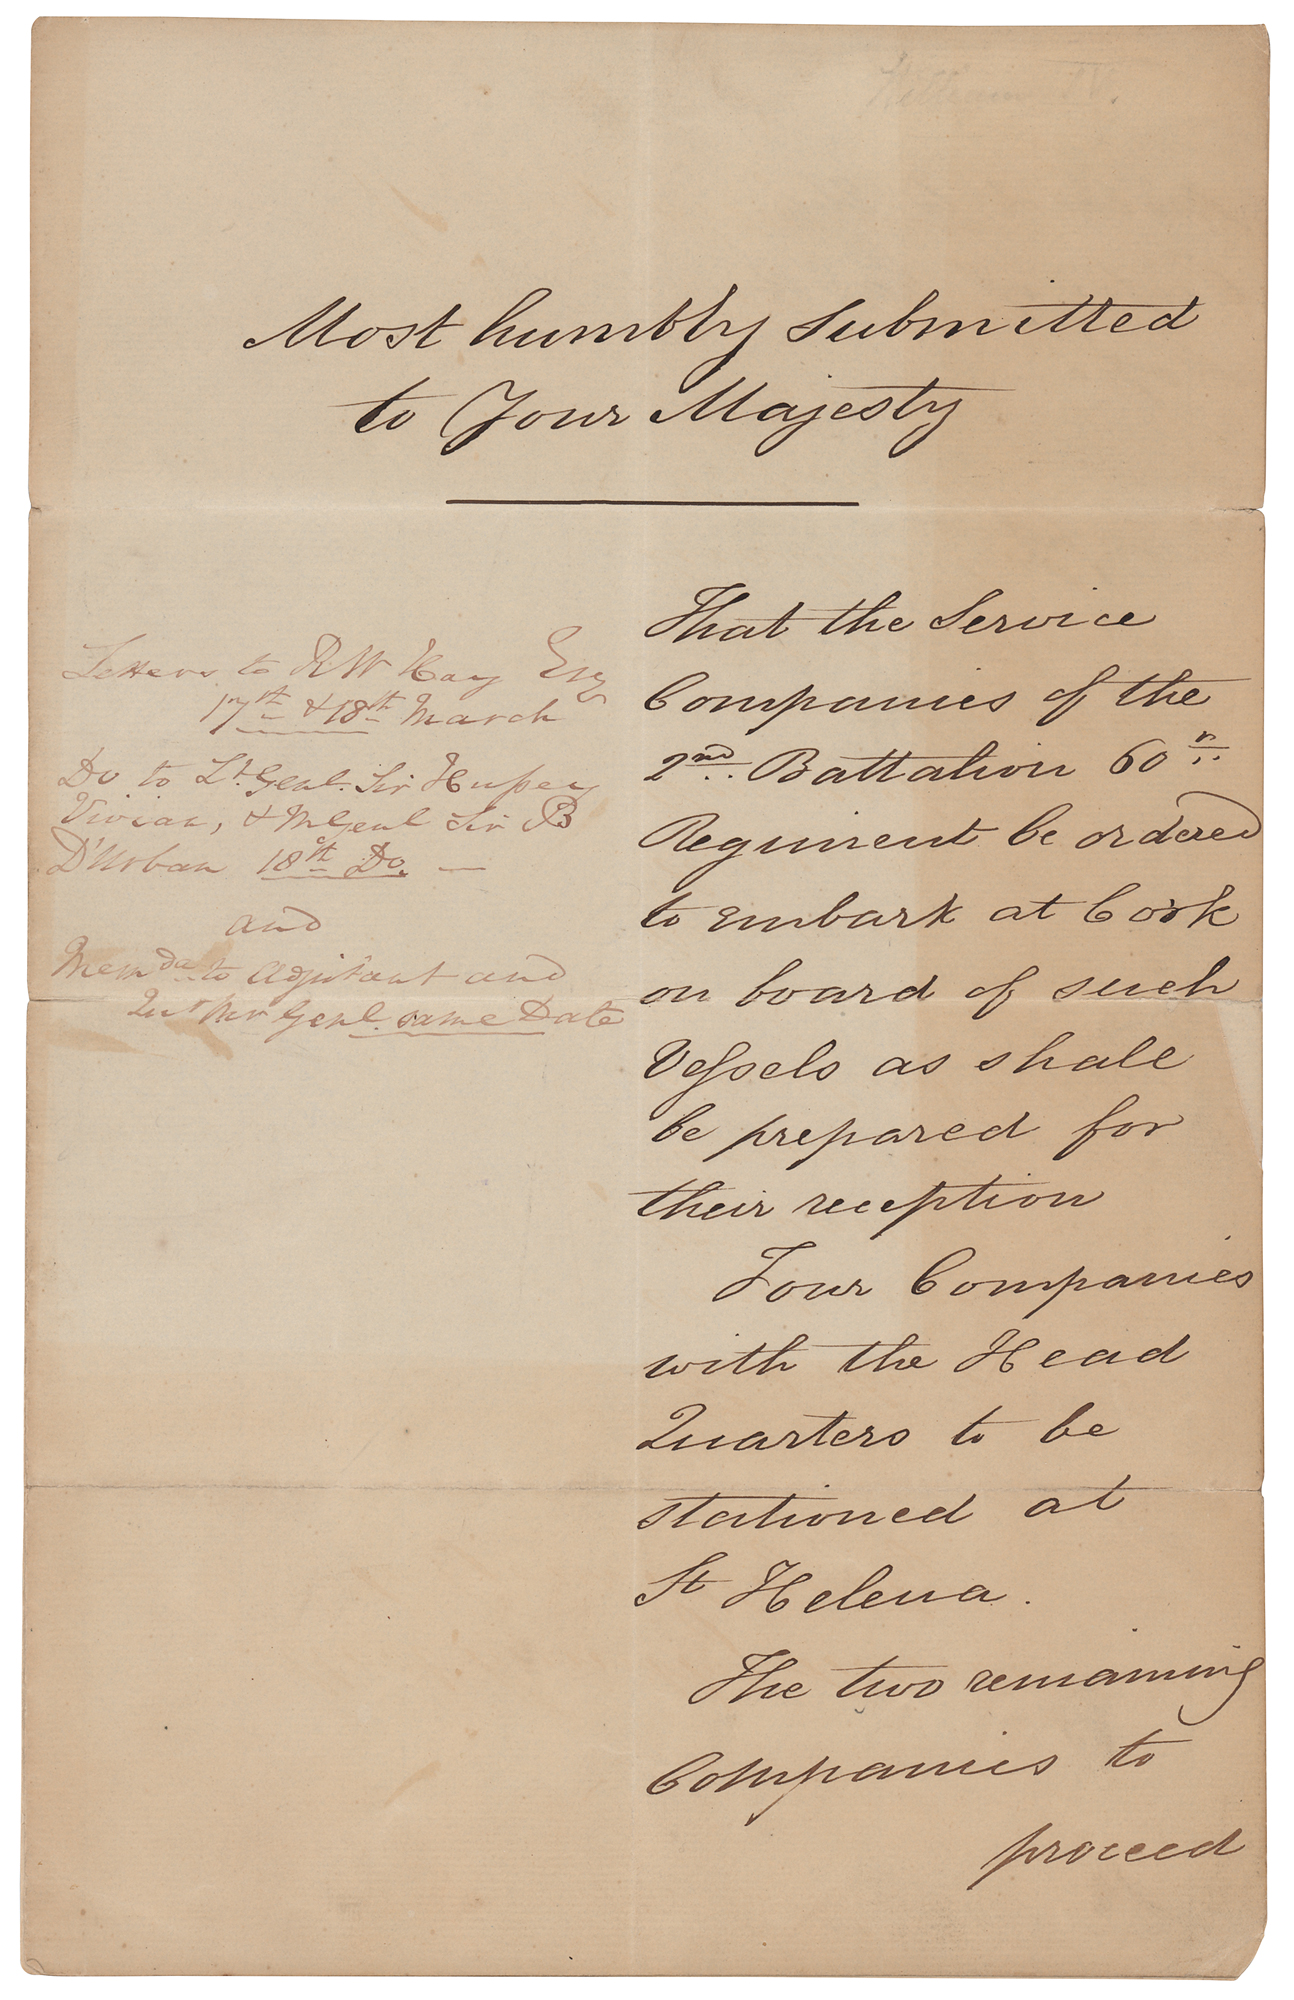 William IV.
Most humbly Submitted
to Your Majesty
Letters to R W Hay Esq
17th & 18th March
Do to Lt. Genl. Sir Hussey
Vivian, & M Genl Sir B
D'Urban 18th Do. —
and
Memda to Adjutant and
Qur Mr Genl. same Date
That the Service
Companies of the
2nd. Battalion 60th
Regiment be ordered
to embark at Cork
on board of such
Vessels as shall
be prepared for
their reception
Four Companies
with the Head
Quarters to be
stationed at
St Helena.
The two remaining
Companies to
proceed